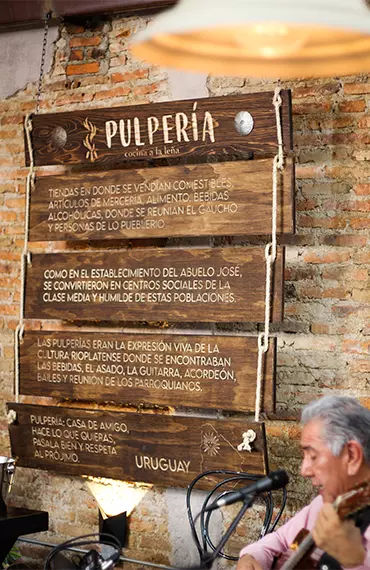 PULPERÍA
cocina a la leña
TIENDAS EN DONDE SE VENDÍAN COMESTIBLES,
ARTÍCULOS DE MERCERIA, ALIMENTO, BEBIDAS
ALCOHÓLICAS, DONDE SE REUNÍAN EL GAUCHO
Y PERSONAS DE LO PUEBLERIO.
COMO EN EL ESTABLECIMIENTO DEL ABUELO JOSE,
SE CONVIRTIERON EN CENTROS SOCIALES DE LA
CLASE MEDIA Y HUMILDE DE ESTAS POBLACIONES.
LAS PULPERÍAS ERAN LA EXPRESIÓN VIVA DE LA
CULTURA RIOPLATENSE DONDE SE ENCONTRABAN
LAS BEBIDAS, EL ASADO, LA GUITARRA, ACORDEÓN,
BAILES Y REUNIÓN DE LOS PARROQUIANOS.
PULPERÍA: CASA DE AMIGO,
HACE LO QUE QUIERAS,
PASALA BIEN Y RESPETA
AL PROJIMO.
URUGUAY